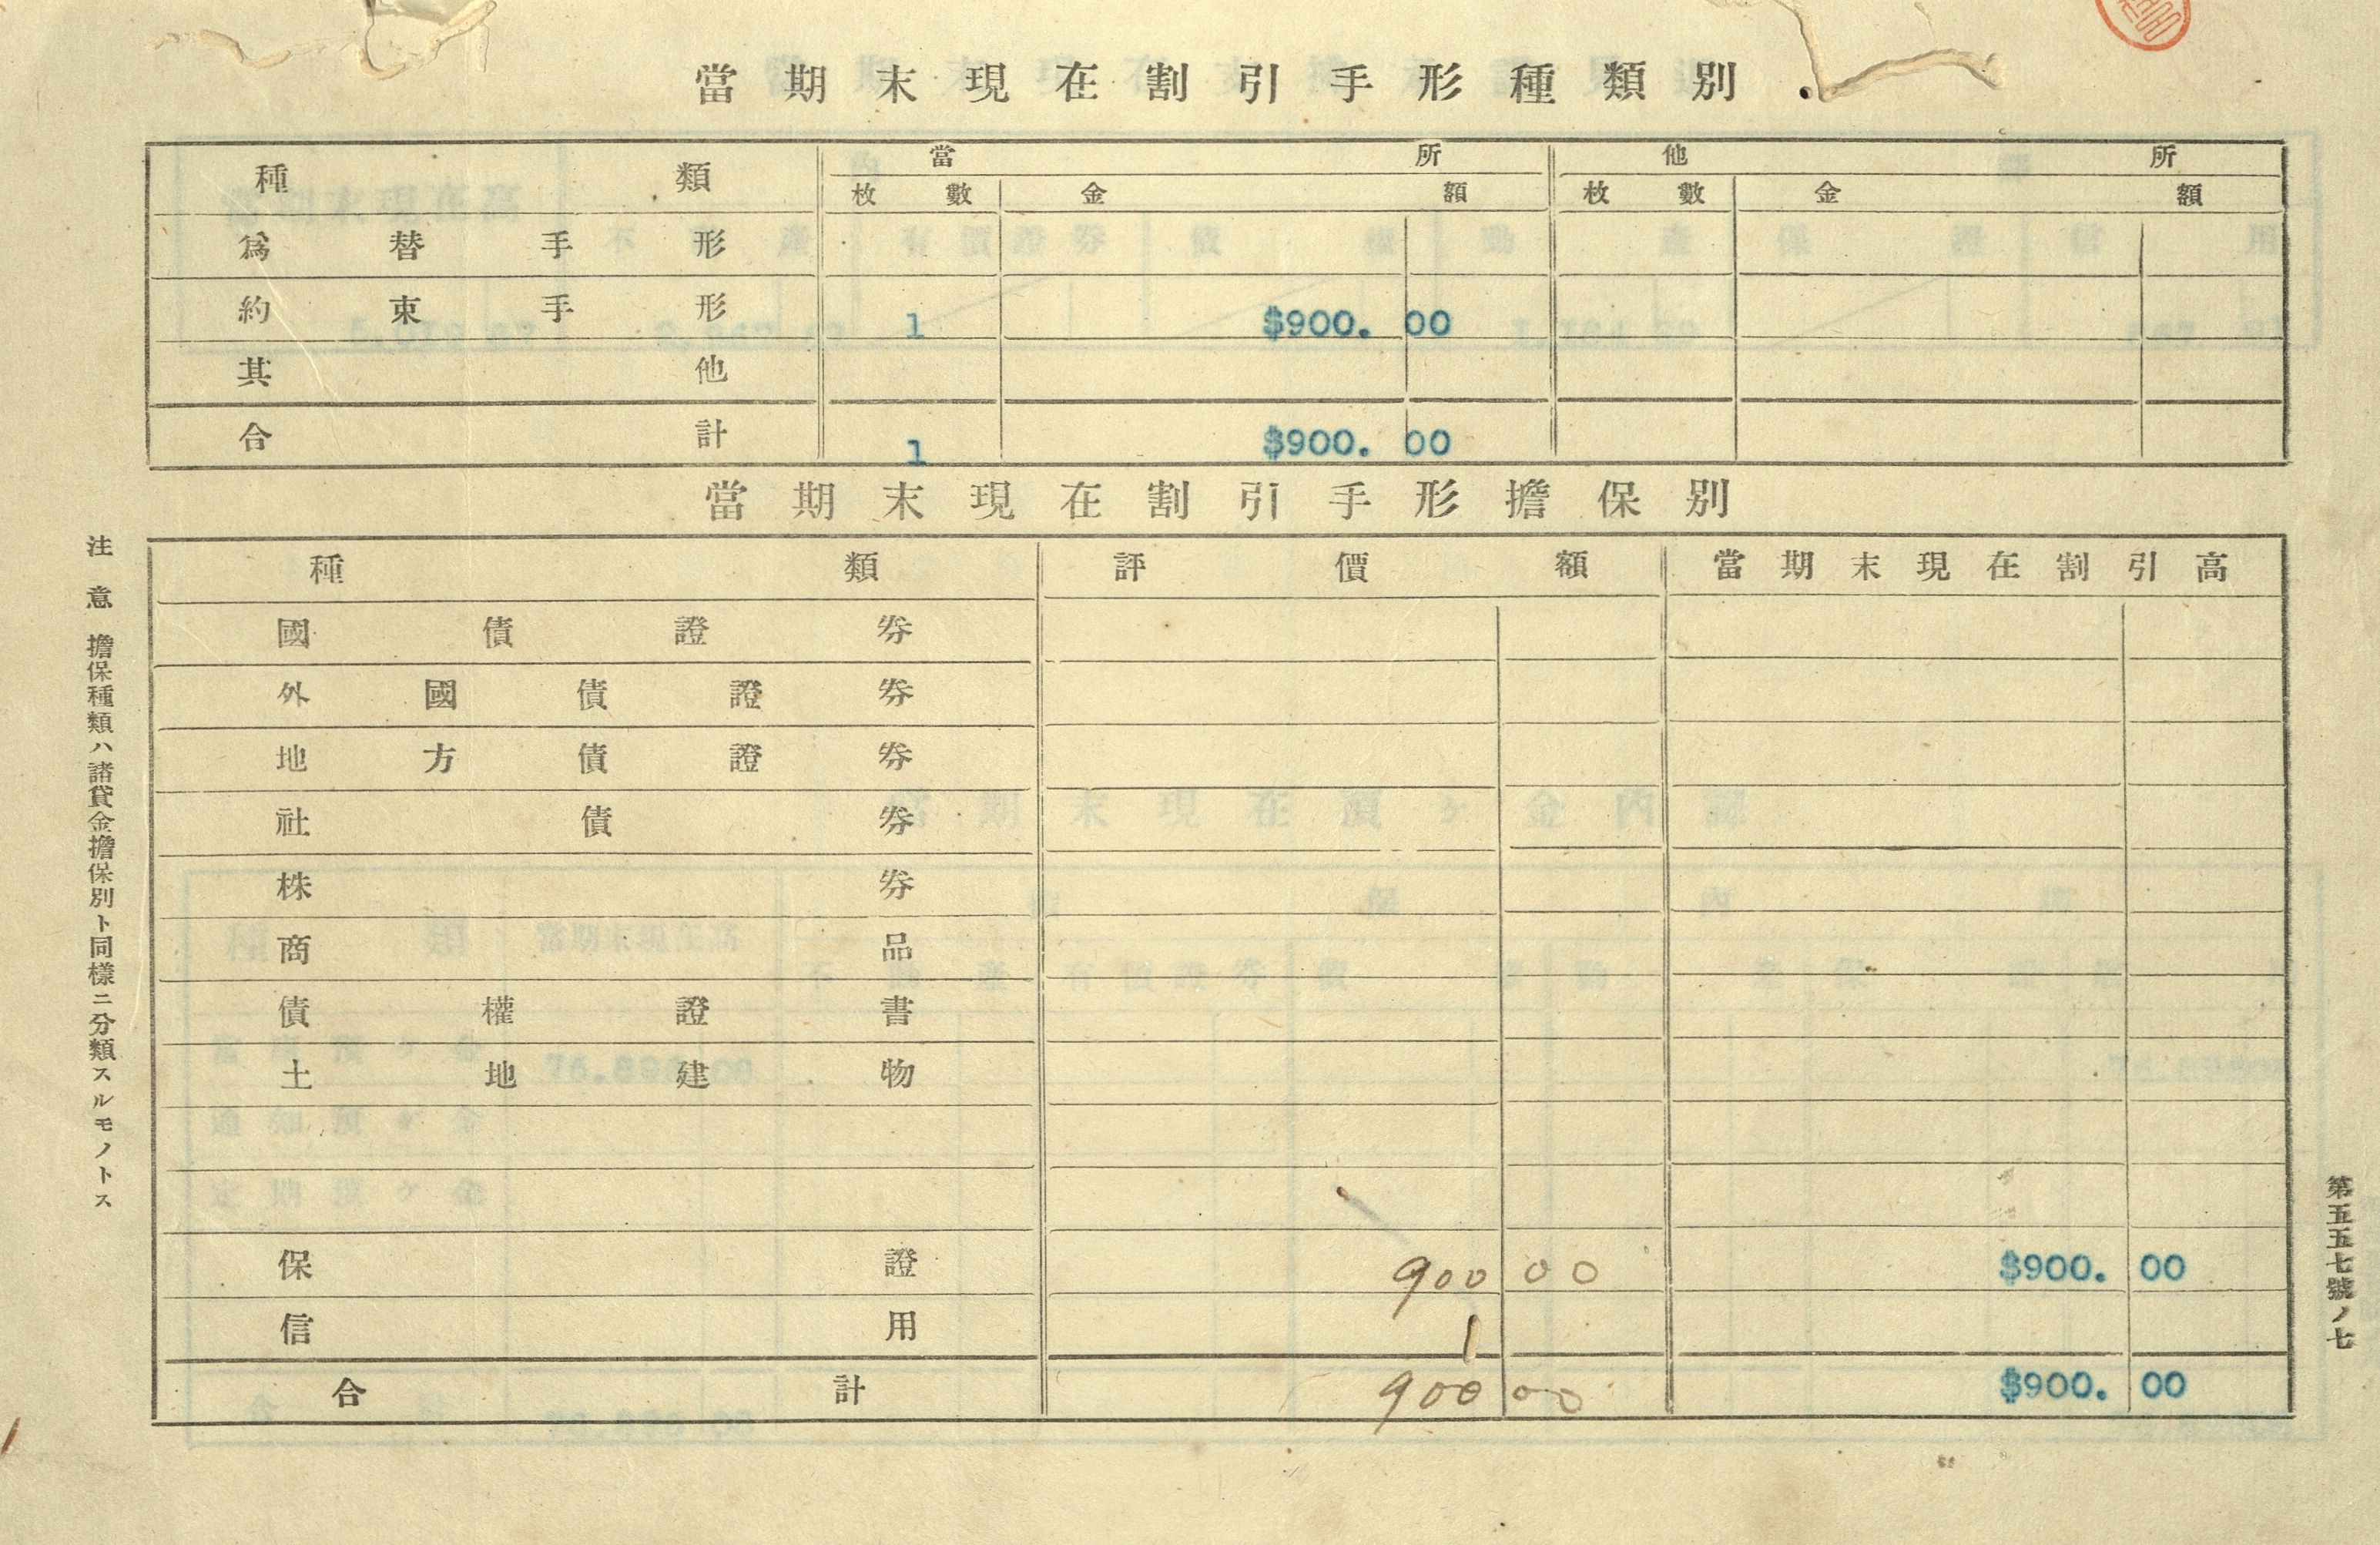 當期末現在割引手形種類別
種類 當所 他所
枚數 金額 枚數 金額
爲替手形
約束手形 1 $900. 00
其他
合計 1 $900. 00
當期末現在割引手形擔保別
種類 評價額 當期末現在割引高
國債證券
外國債證券
地方債證券
社債券
株券
商品
債權證書
土地建物
保證 900 00 $900. 00
信用
合計 900 00 $900. 00
注意 擔保種類ハ諸貸金擔保別ト同樣ニ分類スルモノトス
第五五七號ノ七